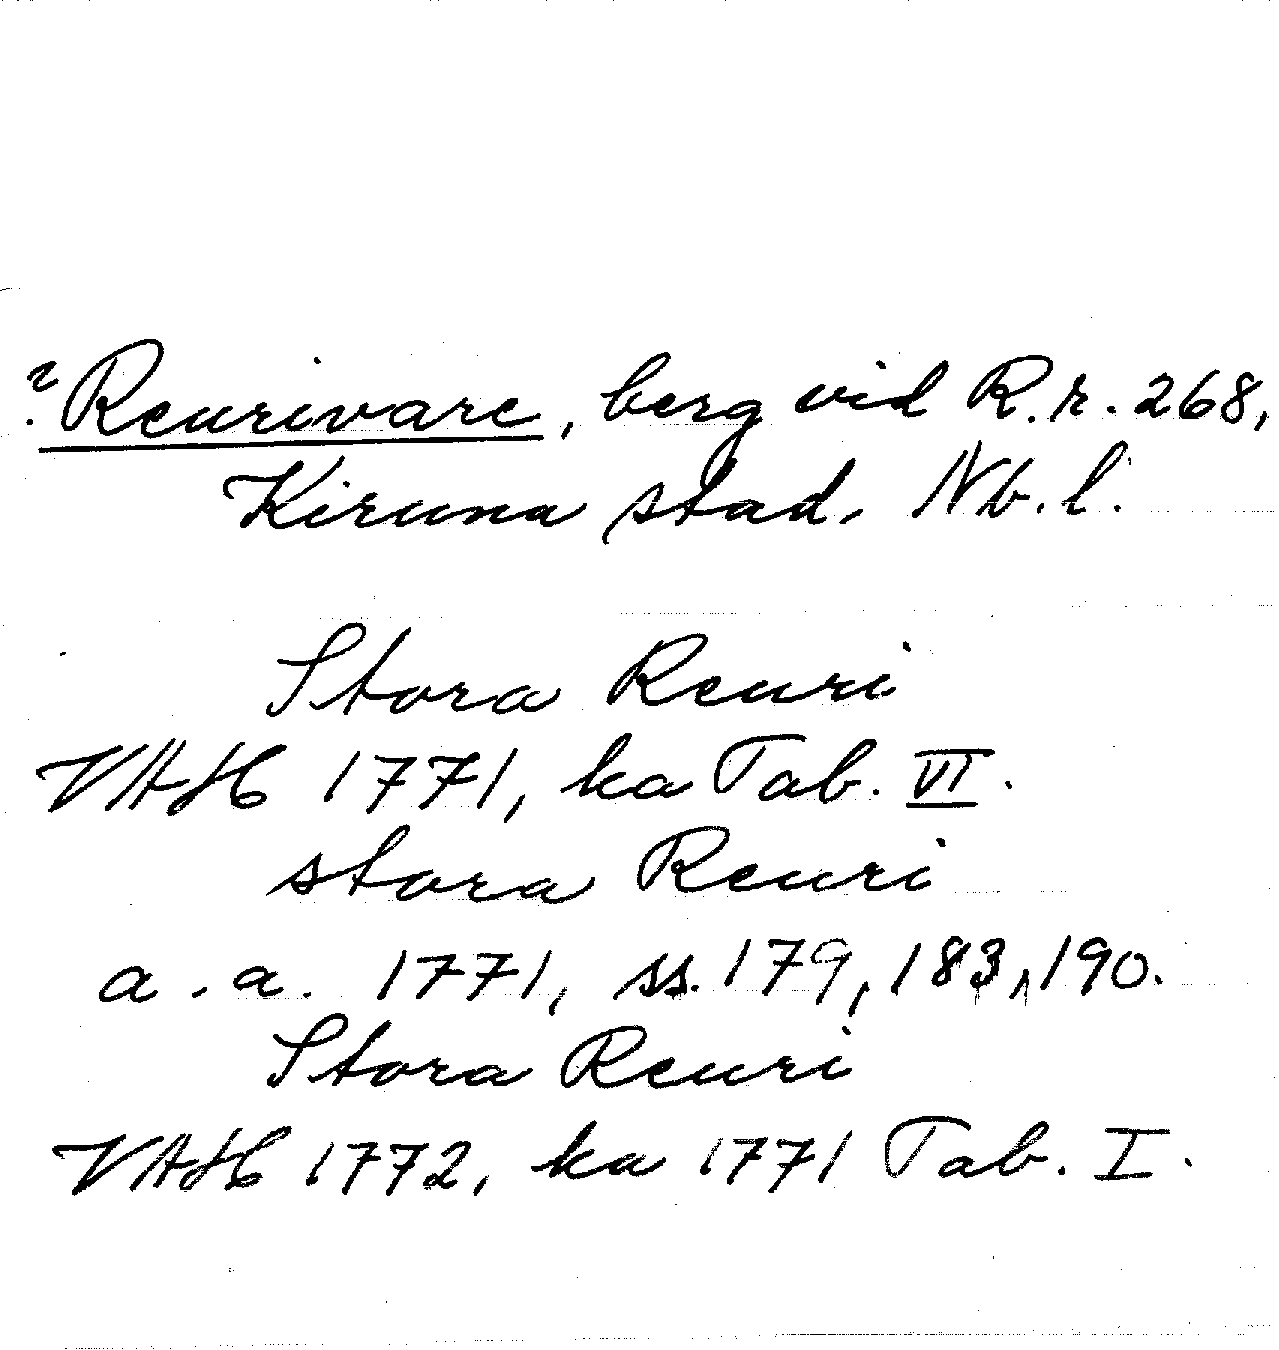 ? Reurivare, berg vid R.r. 268,
Kiruna stad, Nb.l.
Stora Reuri
VAH 1771, ka Tab. VI.
stora Reuri
a. a. 1771, ss. 179, 183, 190.
Stora Reuri
VAH 1772, ka 1771 Tab. I.